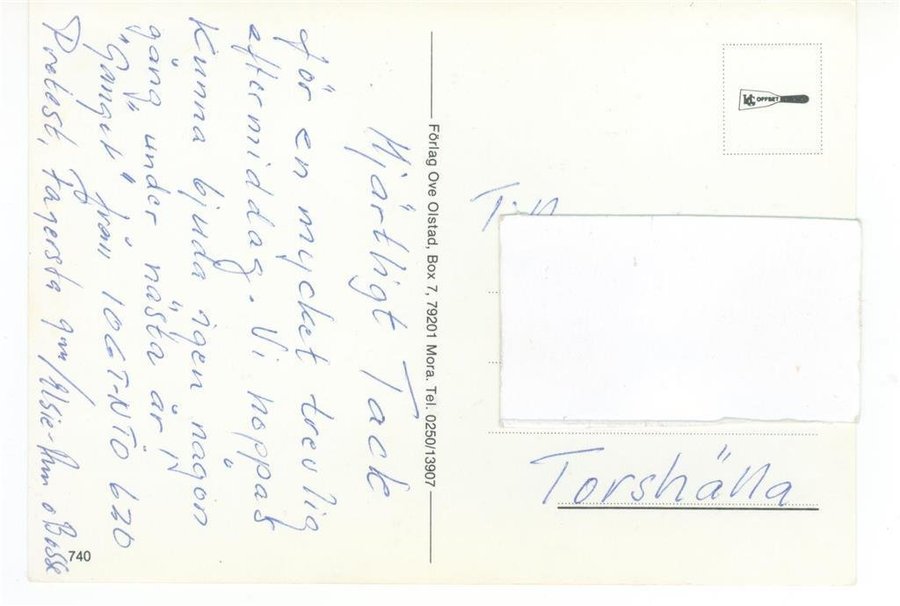 Hjärtligt Tack
för en mycket trevlig
eftermiddag. Vi hoppas
Kunna bjuda igen någon
gång under nästa år
"Gänget" från IOGT-NTO 620
Protest, Fagersta gm/Elsie-Ann o Bosse
740
Förlag Ove Olstad, Box 7, 79201 Mora. Tel. 0250/13907
OFFSET
Till
Torshälla